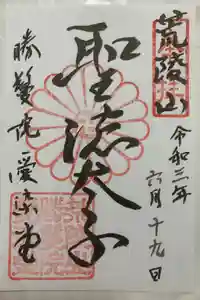 荒陵山
令和三年
六月十九日
聖徳太子
勝鬘院愛染堂